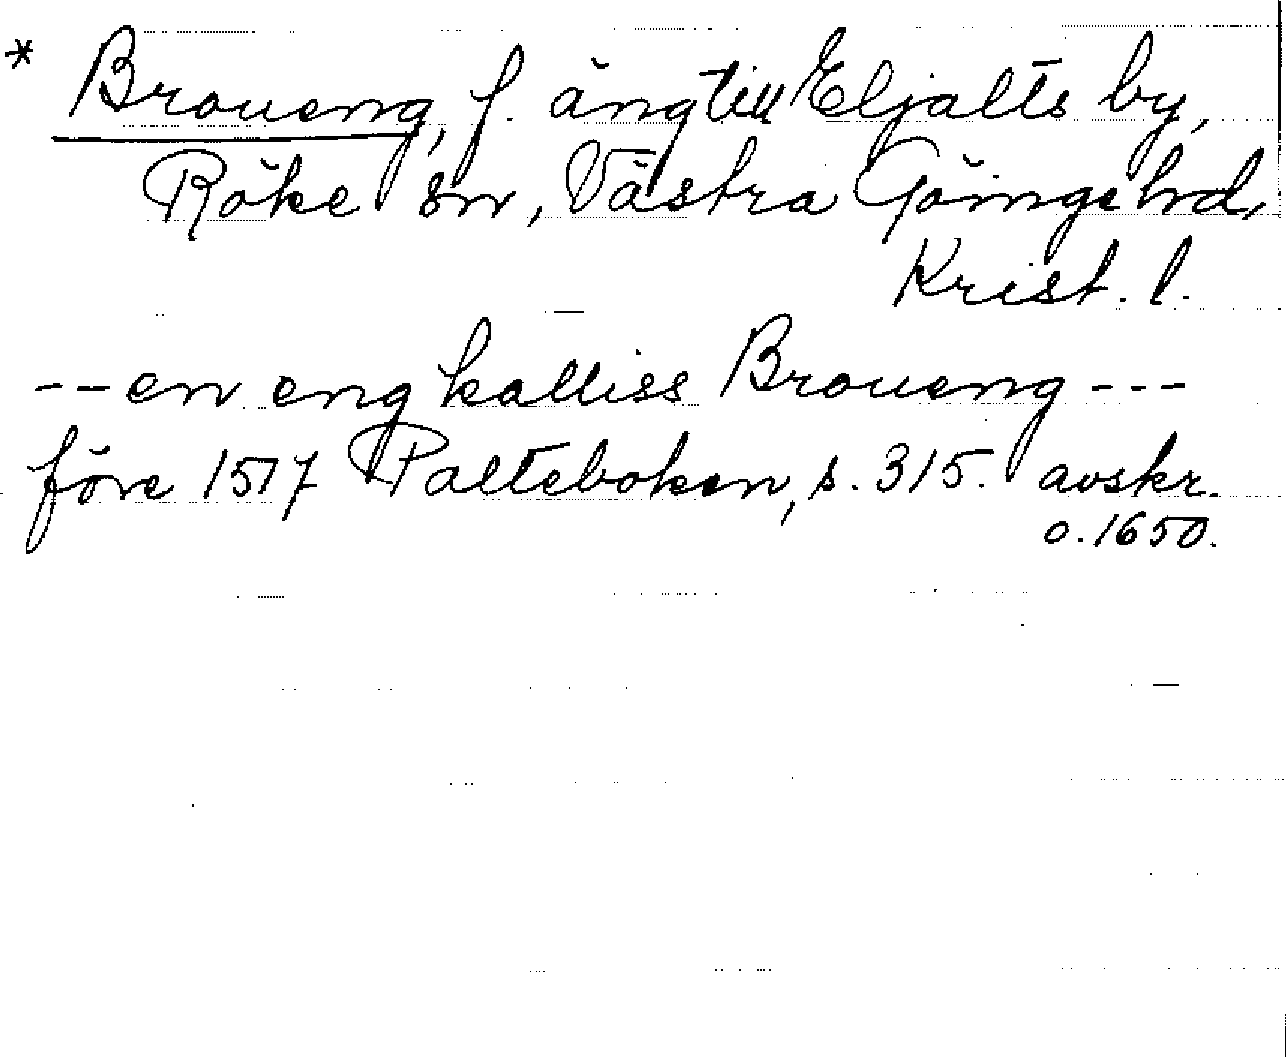 * Broueng, f. äng till Eljalts by,
Röke sn, Västra Göinge hrd,
Krist. l.
-- en eng kalliss Broueng ---
före 1517 Palteboken, s. 315. avskr.
o. 1650.